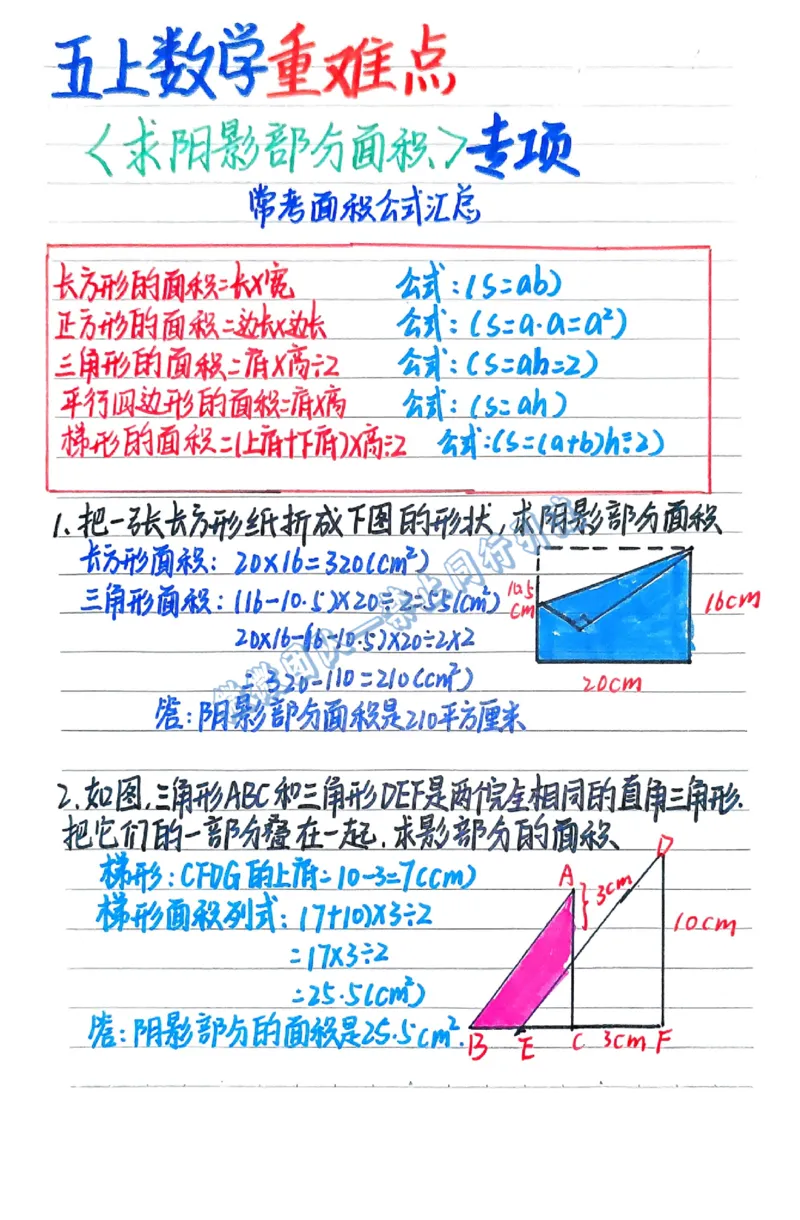 五上数学重难点
<求阴影部分面积>专项
常考面积公式汇总
长方形的面积=长×宽 公式:(S=ab)
正方形的面积=边长×边长 公式:(S=a·a=a²)
三角形的面积=底×高÷2 公式:(S=ah=2)
平行四边形的面积=底×高 公式:(S=ah)
梯形的面积=(上底+下底)×高÷2 公式:(S=(a+b)h÷2)
1.把一张长方形纸折成下图的形状,求阴影部分面积
长方形面积:20×16=320(cm²)
三角形面积:(16-10.5)×20÷2=55(cm²)
20×16-(16-10.5)×20÷2×2
=320-110=210(cm²)
答:阴影部分面积是210平方厘米
10.5
cm
16cm
20cm
2.如图,三角形ABC和三角形DEF是两个完全相同的直角三角形.
把它们的一部分叠在一起.求影部分的面积
梯形:CFDG的上底=10-3=7(cm)
梯形面积列式:(7+10)×3÷2
=17×3÷2
=25.5(cm²)
答:阴影部分的面积是25.5cm².
D
A
3cm
10cm
B E C 3cm F